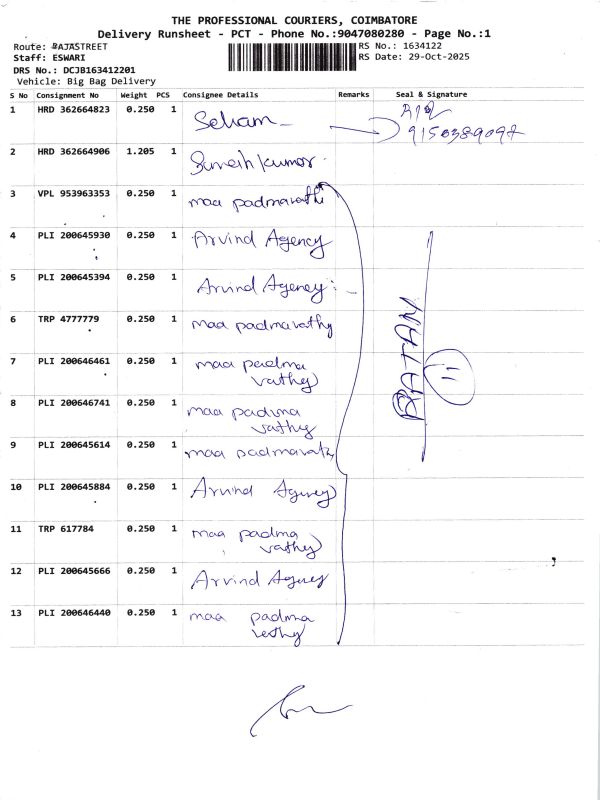 THE PROFESSIONAL COURIERS, COIMBATORE
Delivery Runsheet - PCT - Phone No.:9047080280 - Page No.:1
Route: RAJASTREET
Staff: ESWARI
DRS No.: DCJB163412201
Vehicle: Big Bag Delivery
RS No.: 1634122
RS Date: 29-Oct-2025
S No Consignment No Weight PCS Consignee Details Remarks Seal & Signature
1 HRD 362664823 0.250 1 Selvam
9150389097
2 HRD 362664906 1.205 1 Suresh kumar
3 VPL 953963353 0.250 1 maa padmavathi
4 PLI 200645930 0.250 1 Arvind Agency
5 PLI 200645394 0.250 1 Arvind Agency
6 TRP 4777779 0.250 1 maa padmavathy
7 PLI 200646461 0.250 1 maa padma
vathy
8 PLI 200646741 0.250 1 maa padma
vathy
9 PLI 200645614 0.250 1 maa padmavathy
10 PLI 200645884 0.250 1 Arvind Agency
11 TRP 617784 0.250 1 maa padma
vathy
12 PLI 200645666 0.250 1 Arvind Agency
13 PLI 200646440 0.250 1 maa padma
vathy
11